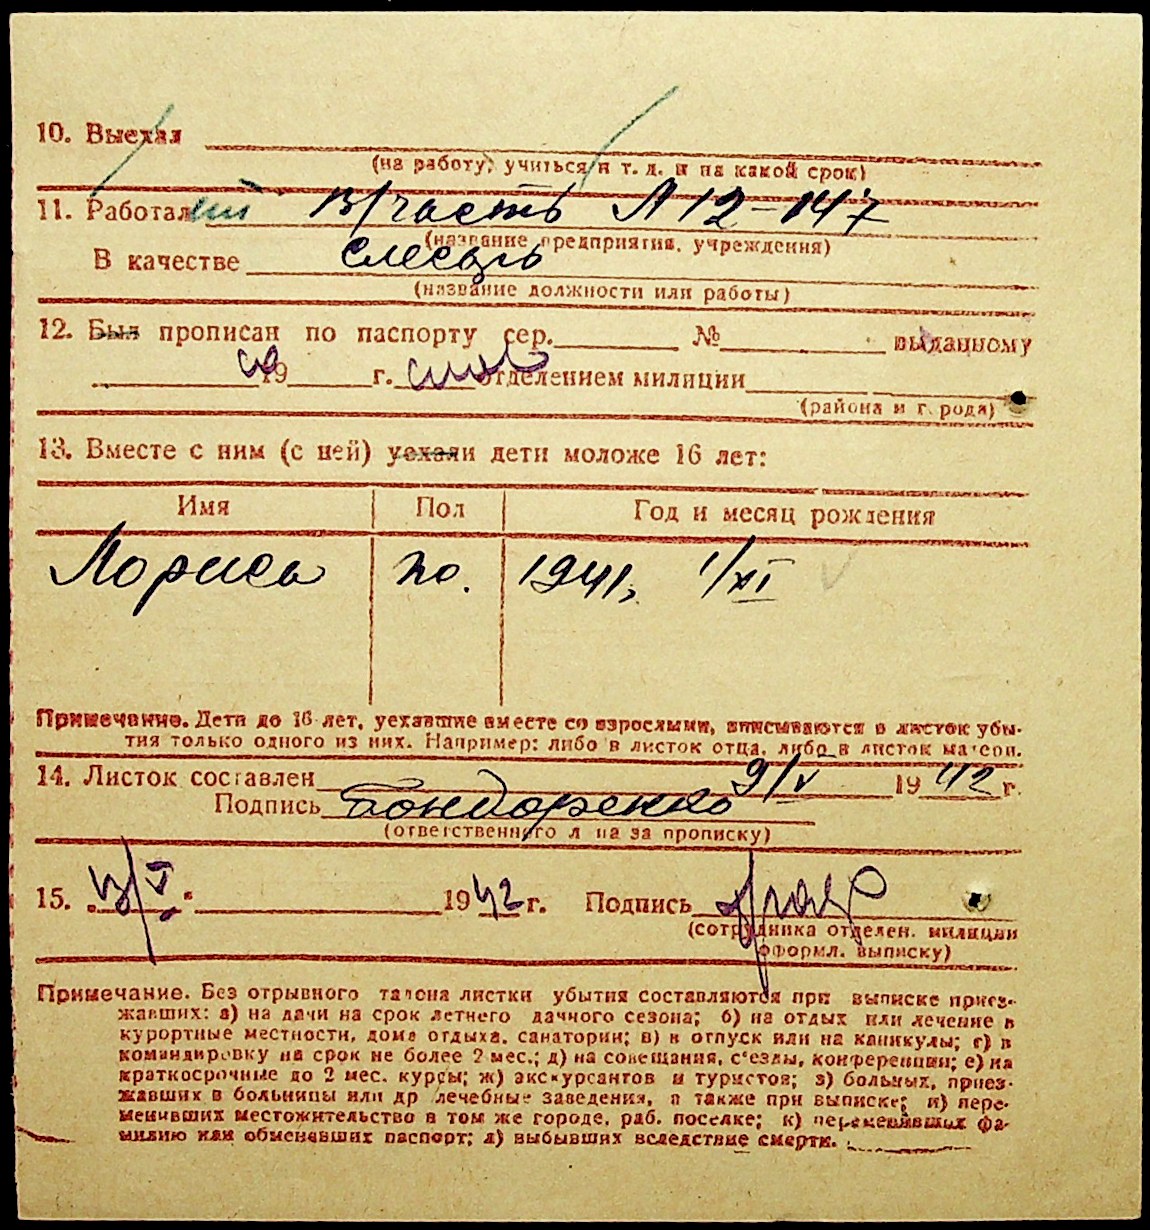 10. Выехал
(на работу, учиться и т. д. и на какой срок)
11. Работал В/часть Л 12-147
(название предприятия, учреждения)
В качестве слесарь
(название должности или работы)
12. Был прописан по паспорту сер. № выданному
19 г. отделением милиции
(района и города)
13. Вместе с ним (с ней) уехали дети моложе 16 лет:
Имя Пол Год и месяц рождения
Лориса 1941, 1/XI
Примечание. Дети до 16 лет, уехавшие вместе со взрослыми, вписываются в листок убы-
тия только одного из них. Например: либо в листок отца, либо в листок матери.
14. Листок составлен 9/V 1942 г.
Подпись Бондоренко
(ответственного лица за прописку)
15. 13/V 1942 г. Подпись
(сотрудника отделен. милиции
оформл. выписку)
Примечание. Без отрывного талона листки убытия составляются при выписке приез-
жавших: а) на дачи на срок летнего дачного сезона; б) на отдых или лечение в
курортные местности, дома отдыха, санатории; в) в отпуск или на каникулы; г) в
командировку на срок не более 2 мес.; д) на совещания, съезды, конференции; е) на
краткосрочные до 2 мес. курсы; ж) экскурсантов и туристов; з) больных, приез-
жавших в больницы или др лечебные заведения, а также при выписке; и) пере-
менивших местожительство в том же городе, раб. поселке; к) переменивших фа-
милию или обменявших паспорт; л) выбывших вследствие смерти.